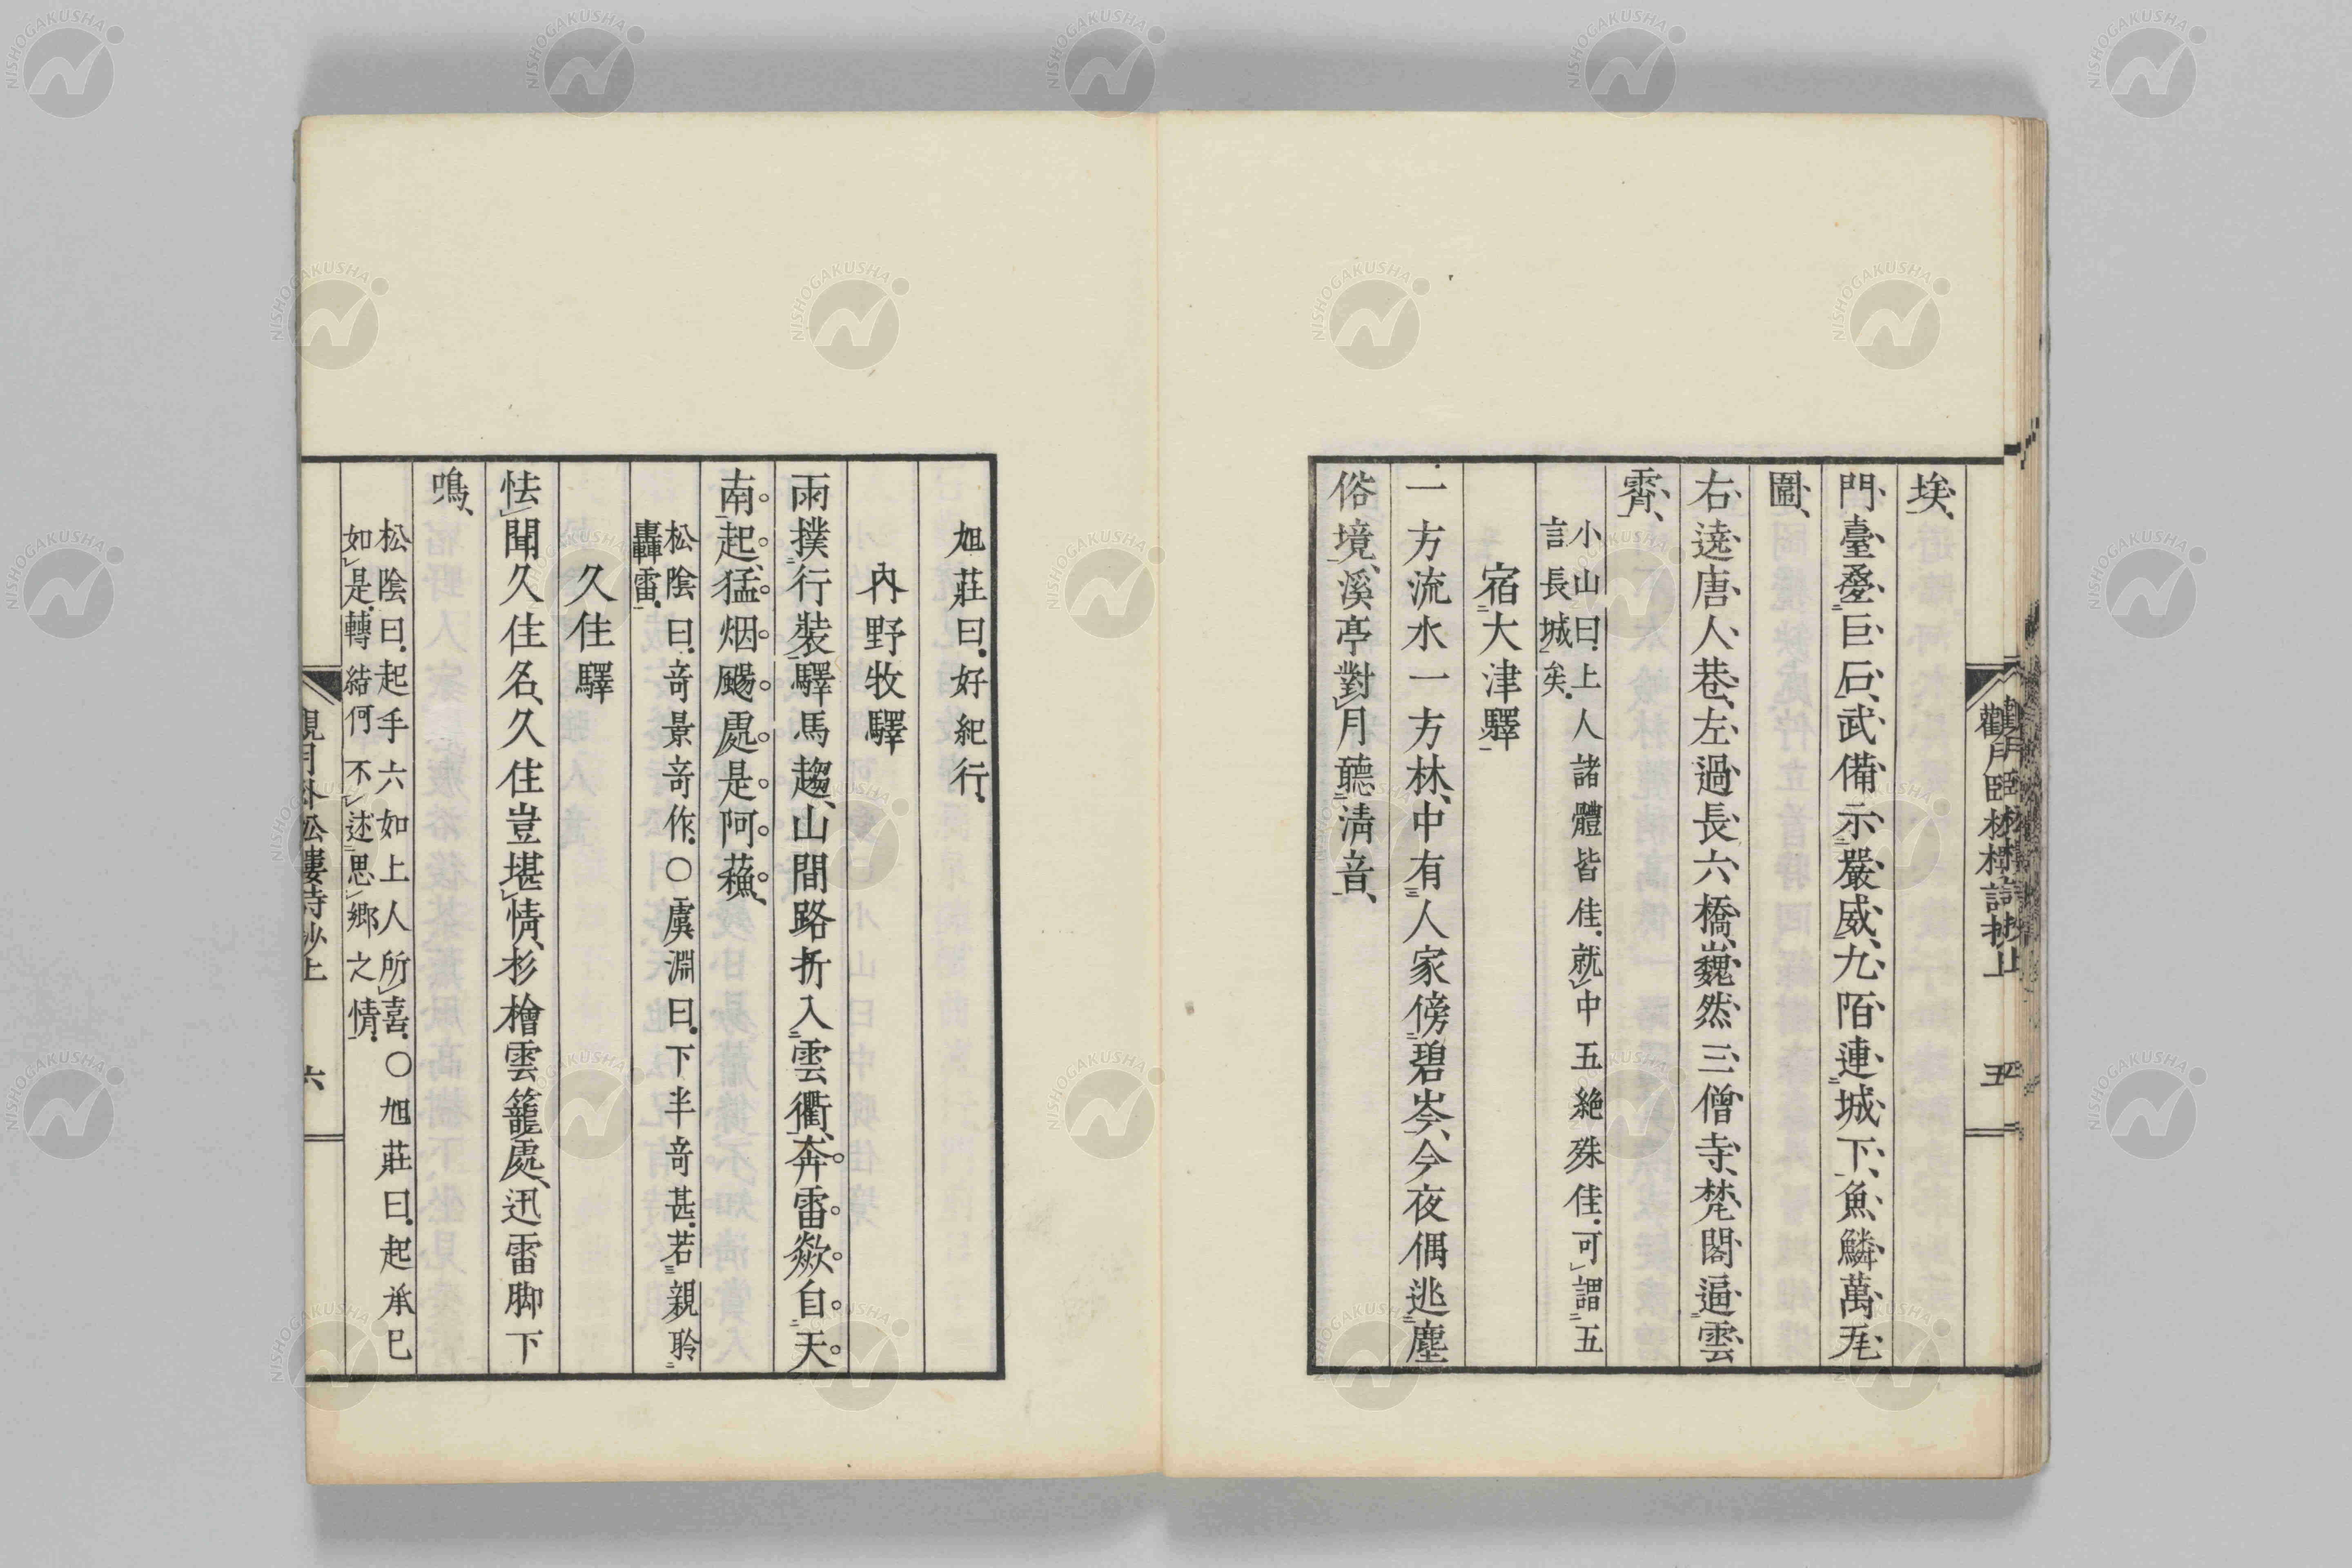 埃、
門、臺、疊、巨、石、武、備、示、嚴、威、九、陌、連、城、下、魚、鱗、萬、瓦、
圖、
右、遶、唐、人、巷、左、過、長、六、橋、巍、然、三、僧、寺、梵、閣、逼、雲、
霽、
小山曰、上人諸體皆佳、就中五絶殊佳、可謂五
言長城矣、
宿大津驛
一方流水一方林、中有人家傍碧岑、今夜偶逃塵
俗境、溪亭對月聽清音、
五
旭莊曰、好紀行、
内野牧驛
雨撲行裝驛馬趨、山間路折入雲衢、奔雷歘自天
南起、猛烟颺處是阿蘓、
松陰曰、竒景竒作、○虞淵曰、下半竒甚、若親聆
轟雷、
久住驛
怯聞久住名、久住豈堪情、杉檜雲籠處、迅雷脚下
鳴、
松陰曰、起手六如上人所喜、○旭莊曰、起承已
如是、轉結何不述思鄉之情、
六